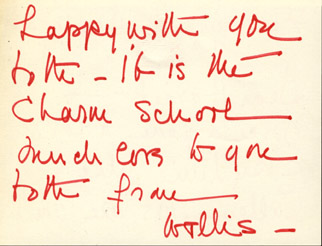 happy with you
both – It is the
Charm School
much love to you
both from
Wallis –